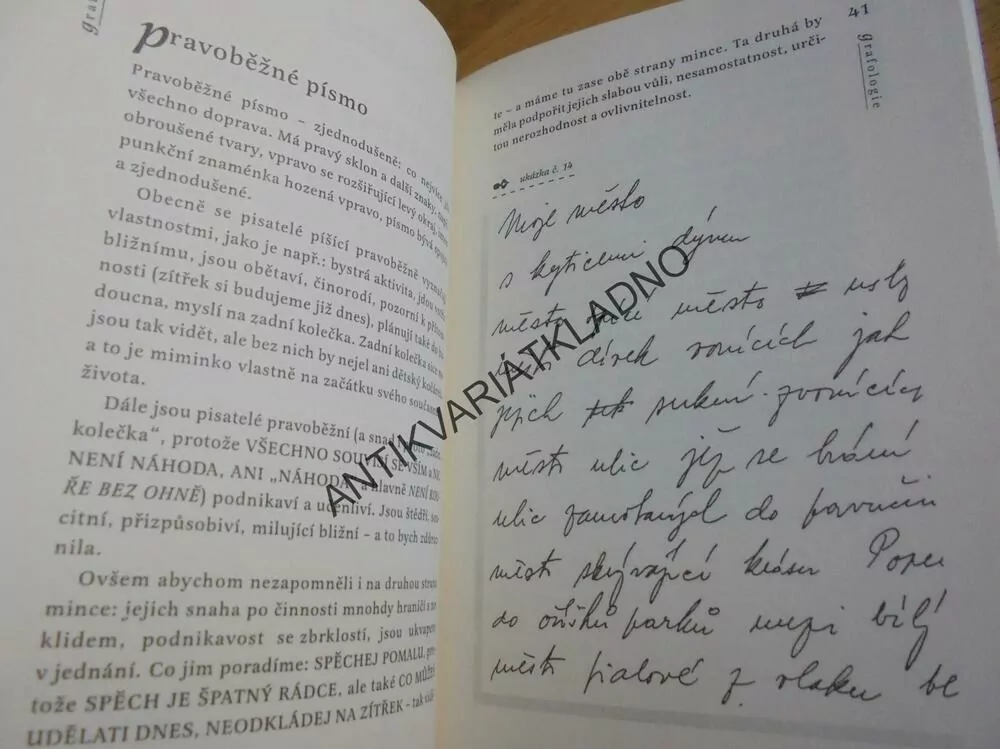 grafo
pravoběžné písmo
Pravoběžné písmo – zjednodušeně: co nejvíce
všechno doprava. Má pravý sklon a další znaky,
obroušené tvary, vpravo se rozšiřující levý okraj,
punkční znaménka hozená vpravo, písmo bývá
a zjednodušené.
Obecně se pisatelé píšící pravoběžně
vlastnostmi, jako je např.: bystrá aktivita, jdou
bližnímu, jsou obětaví, činorodí, pozorní k
nosti (zítřek si budujeme již dnes), plánují také do
doucna, myslí na zadní kolečka. Zadní kolečka sice
jsou tak vidět, ale bez nich by nejel ani dětský
a to je miminko vlastně na začátku svého
života.
Dále jsou pisatelé pravoběžní (a snad
kolečka“, protože VŠECHNO SOUVISÍ SE VŠÍM a NIC
NENÍ NÁHODA, ANI „NÁHODA“ a hlavně NENÍ
ŘE BEZ OHNĚ) podnikaví a učenliví. Jsou štědří,
citní, přizpůsobiví, milující bližní – a to bych
nila.
Ovšem abychom nezapomněli i na druhou
mince: jejich snaha po činnosti mnohdy hraničí s
klidem, podnikavost se zbrklostí, jsou
v jednání. Co jim poradíme: SPĚCHEJ POMALU,
tože SPĚCH JE ŠPATNÝ RÁDCE, ale také CO MŮŽEŠ
UDĚLATI DNES, NEODKLÁDEJ NA ZÍTŘEK – tak
41
grafologie
te – a máme tu zase obě strany mince. Ta druhá by
měla podpořit jejich slabou vůli, nesamostatnost, urči-
tou nerozhodnost a ovlivnitelnost.
ukázka č. 14
Moje město
s kyticemi dýmu
město město
dírek ronících jak
jejich sukní
měst ulic jež se lámí
ulic zamotaných do pavučin
měst skrývající krásu Popeu
do oříšků parků mezi bílý
měst fialové z vlaku be
ANTIKVARIÁTKLADNO